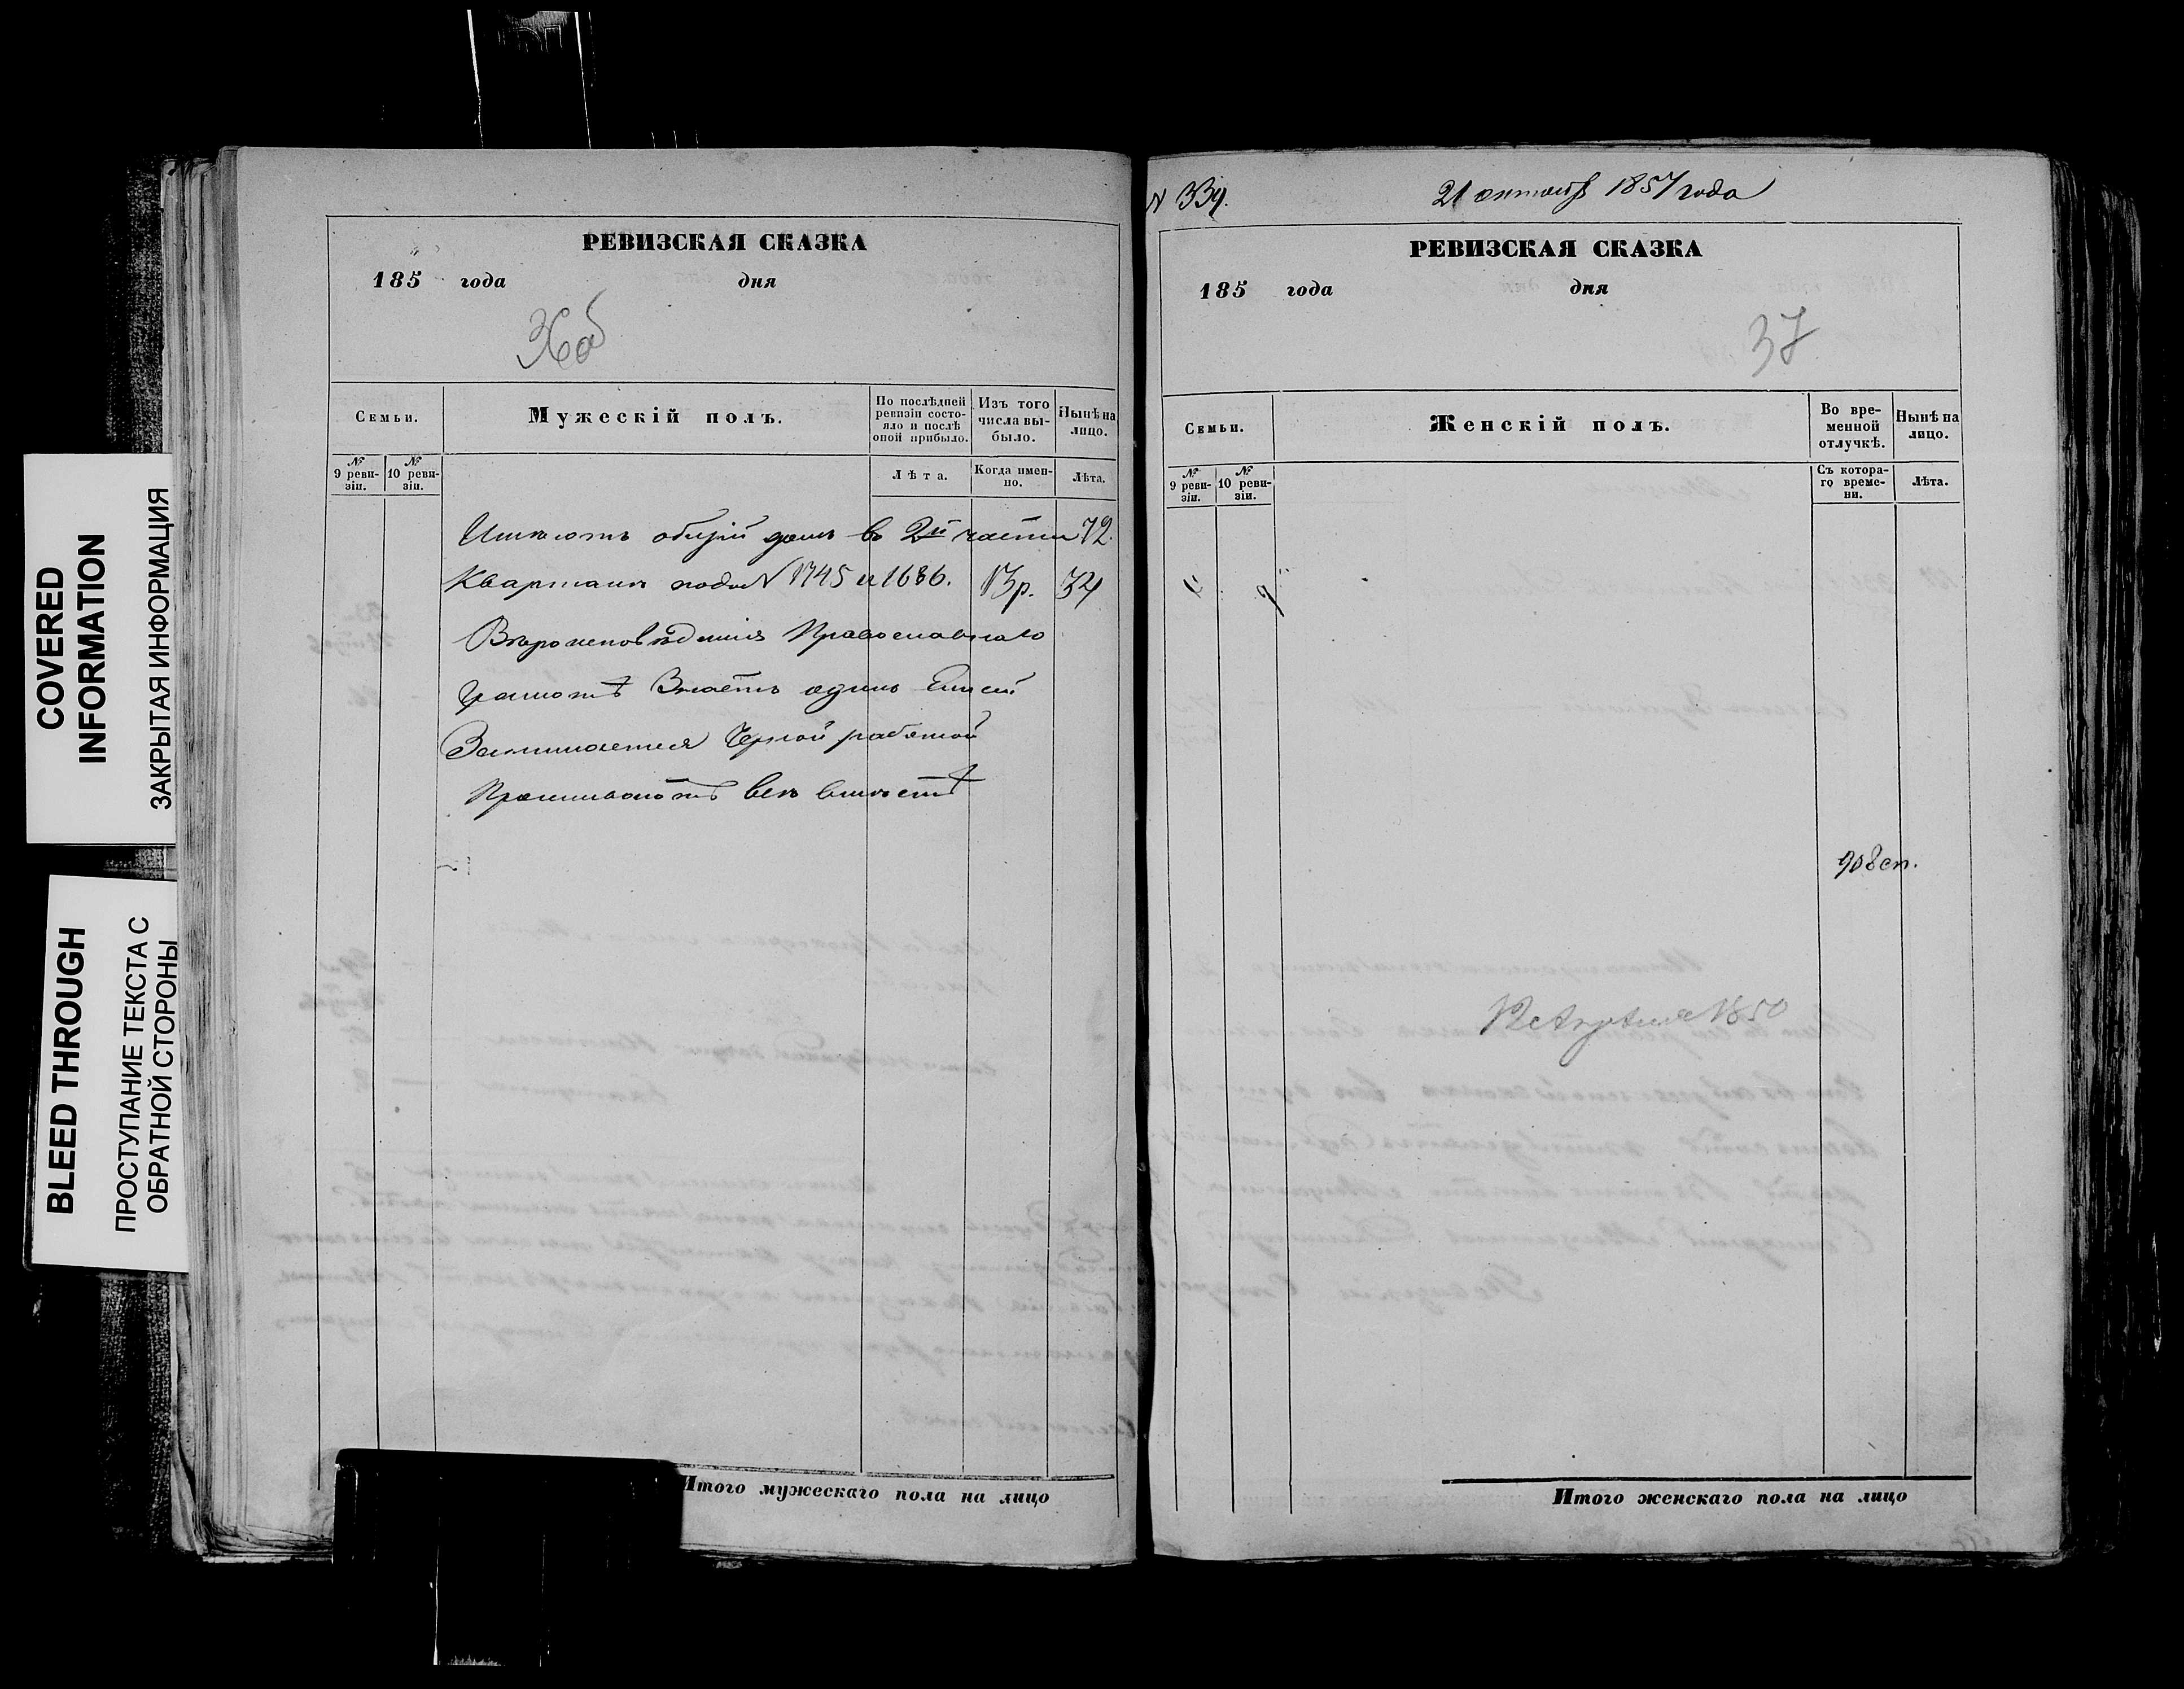 COVERED
INFORMATION
ЗАКРЫТАЯ ИНФОРМАЦИЯ
BLEED THROUGH
ПРОСТУПАНИЕ ТЕКСТА С
ОБРАТНОЙ СТОРОНЫ
РЕВИЗСКАЯ СКАЗКА
185 года дня
36об
Семьи.
Мужескій полъ.
По послѣдней
ревизіи состо-
яло и послѣ
оной прибыло.
Изъ того
числа вы-
было.
Нынѣ на
лицо.
№
9 реви-
зіи.
№
10 реви-
зіи.
Лѣта.
Когда имен-
но.
Лѣта.
Имѣютъ общій домъ во 2й части 12.
Кварталѣ подъ N 1745 и 1686. 13р. 34
Вѣроисповѣданія Православнаго
Грамотѣ Знаетъ одинъ
Занимаются Черной работой
Проживаютъ всѣ вмѣстѣ
Итого мужескаго пола на лицо
N 339.
21 октября 1857 года
РЕВИЗСКАЯ СКАЗКА
185 года дня
37
Семьи.
Женскій полъ.
Во вре-
менной
отлучкѣ.
Нынѣ на
лицо.
№
9 реви-
зіи.
№
10 реви-
зіи.
Съ котора-
го време-
ни.
Лѣта.
1850
Итого женскаго пола на лицо